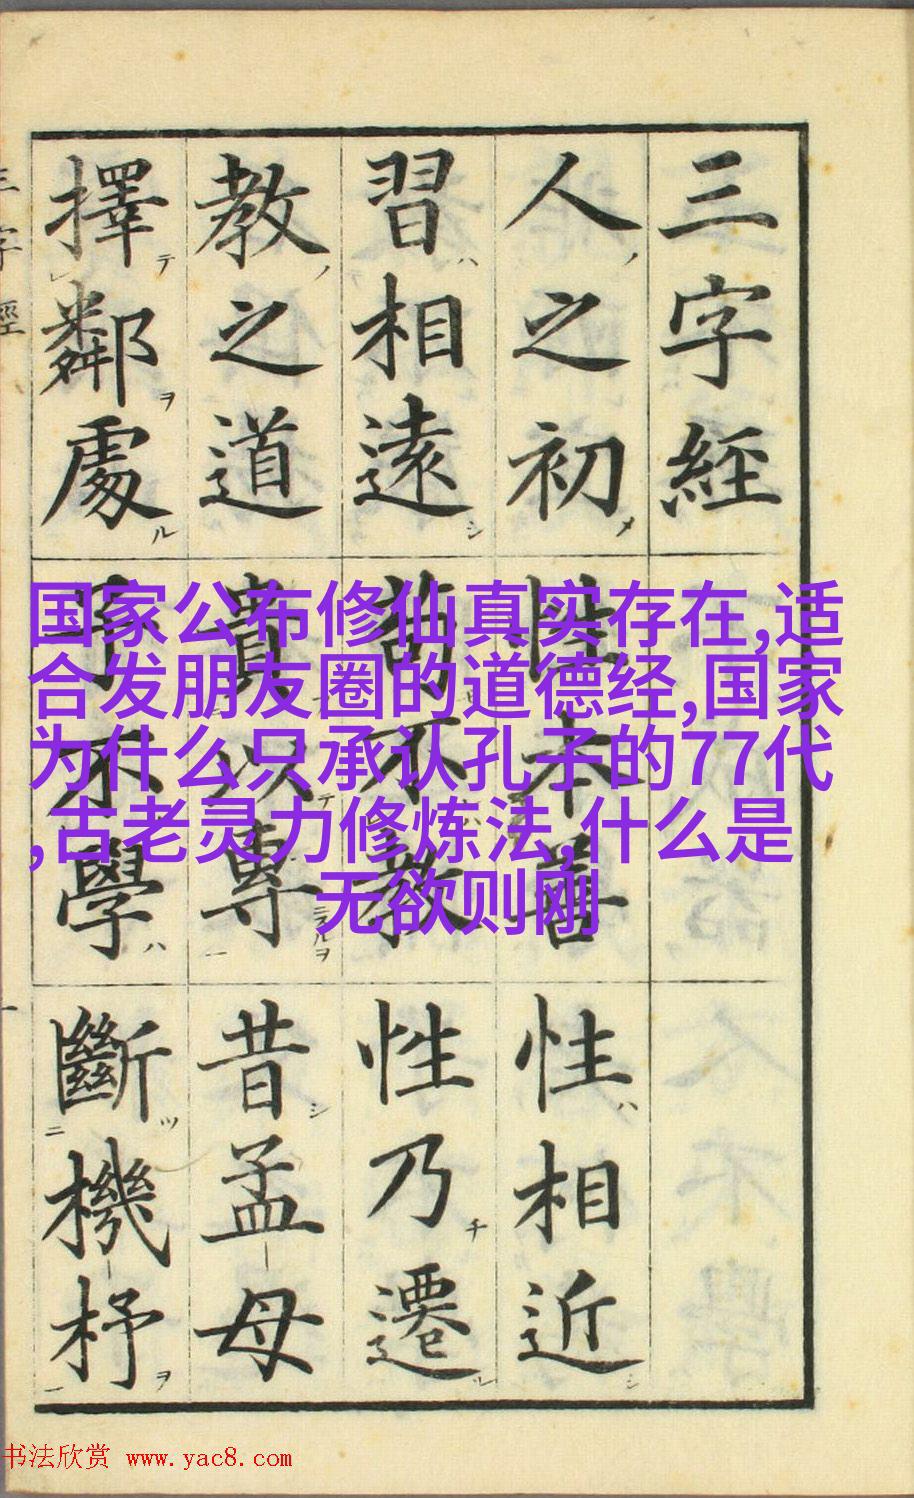 三字経
人之初 性本善 性相近
習相遠 苟不教 性乃遷
教之道 貴以專 昔孟母
擇鄰處 子不學 斷機杼
三字經
国家公布修仙真实存在,适
合发朋友圈的道德经,国家
为什么只承认孔子的77代
,古老灵力修炼法,什么是
无欲则刚
书法欣赏 www.yac8.com